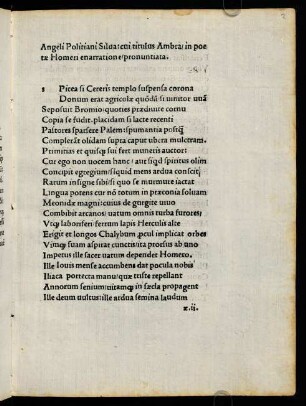 Angeli Politiani Silua: cui titulus Ambra: in poe
tæ Homeri enarratione pronuntiata.
Picea si Cereris templo suspensa corona
Donum erat agricolæ quōdā: si uinitor unā
Seposuit Bromio: quoties prædiuite cornu
Copia se fudit. placidam si lacte recenti
Pastores sparsere Palem: spumantia postq̃
Complerāt olidam supra caput ubera mulctram.
Primitias et quisq; sui fert muneris auctor:
Cur ego non uocem hanc: aut siqd spiritus olim
Concipit egregium: siquid mens ardua conscitq;
Rarum insigne sibi: si quo se murmure iactat
Lingua potens: cur nō totum in præconia soluam
Meonidæ magni: cuius de gurgite uiuo
Combibit arcanos uatum omnis turba furores:
Vtq; laboriferi ferrum lapis Herculis alte
Erigit et longos Chalybum ꝓcul implicat orbes
Vimq; suam aspirat cunctis: ita prorsus ab uno
Impetus ille sacer uatum dependet Homero.
Ille Iouis mensæ accumbens dat pocula nobis
Iliaca porrecta manu: quæ triste repellant
Annorum senium: uitamq; in sæcla propagent
Ille deum uultus: ille ardua semina laudum
x.ii.